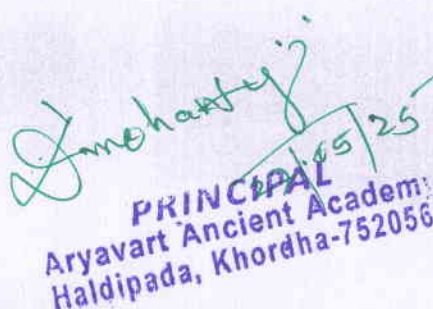 Smohanty
/05/25
PRINCIPAL
Aryavart Ancient Academy
Haldipada, Khordha-752056